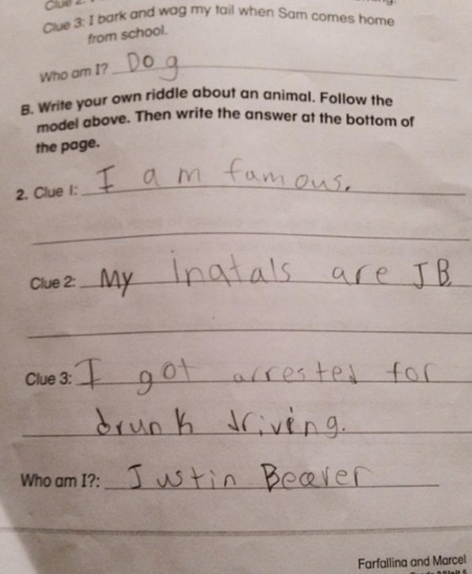 Clue 3: I bark and wag my tail when Sam comes home
from school.
Who am I? Dog
B. Write your own riddle about an animal. Follow the
model above. Then write the answer at the bottom of
the page.
2. Clue 1: I am famous.
Clue 2: My inatals are JB
Clue 3: I got arrested for
drunk driving.
Who am I?: Justin Beaver
Farfallina and Marcel